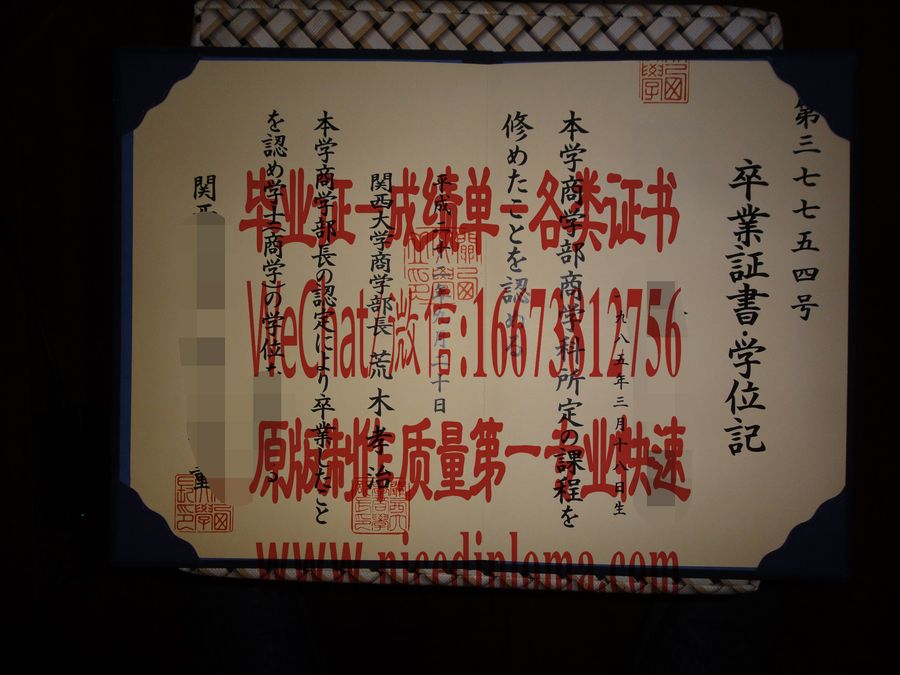 第三七七五四号
卒業証書・学位記
一九八五年三月十八日生
本学商学部商学科所定の課程を
修めたことを認める
平成二十四年九月二十日
関西大学商学部長 荒木孝治
本学商学部長の認定により卒業したこと
を認め学士(商学)の学位を
関西
毕业证—成绩单—各类证书
WeChat/微信:16673912756
原版制作质量第一专业快速
www.nicediploma.com